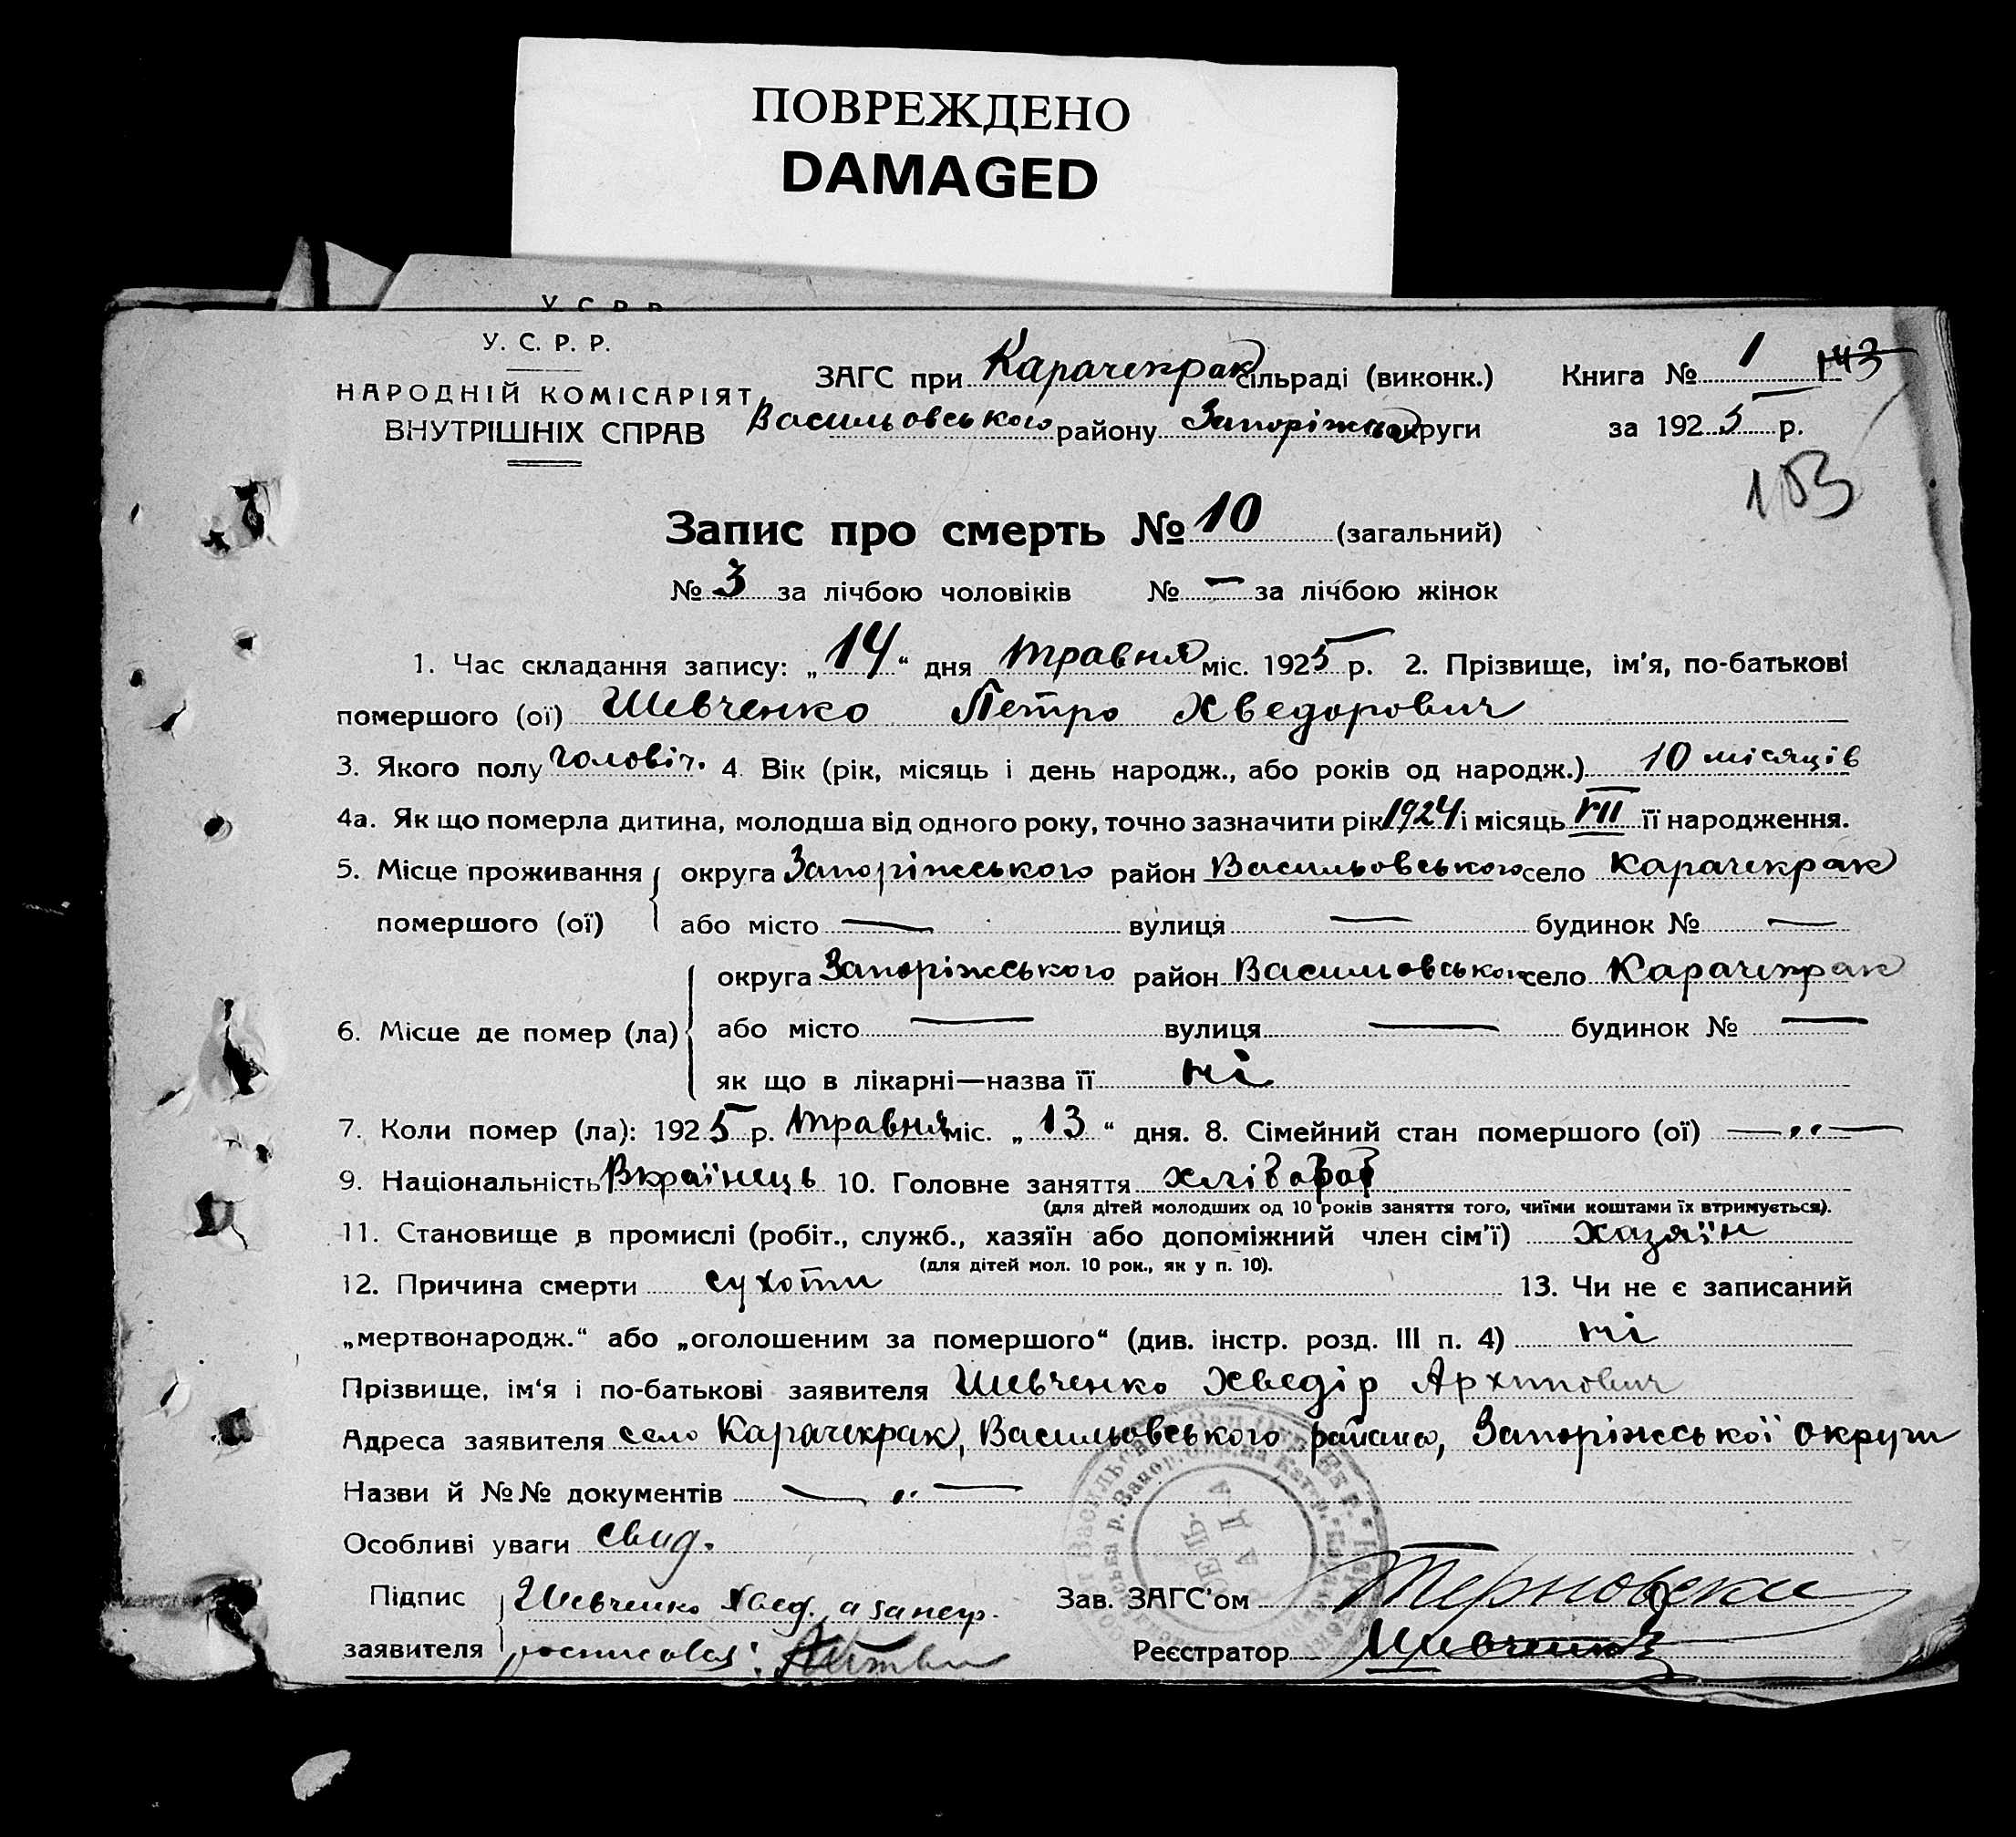 ПОВРЕЖДЕНО
DAMAGED
У. С. Р. Р.
У. С. Р. Р.
НАРОДНІЙ КОМІСАРІЯТ
ВНУТРІШНІХ СПРАВ
ЗАГС при Карачекрак сільраді (виконк.) Книга № 1 143
Васильовського району Запоріжської округи за 1925 р.
103
Запис про смерть № 10 (загальний)
№ 3 за лічбою чоловіків № — за лічбою жінок
1. Час складання запису: „14“ дня травня міс. 1925 р. 2. Прізвище, ім'я, по-батькові
помершого (ої) Шевченко Петро Хведорович
3. Якого полу чоловіч. 4. Вік (рік, місяць і день народж., або років од народж.) 10 місяців
4а. Як що померла дитина, молодша від одного року, точно зазначити рік 1924 і місяць VII її народження.
5. Місце проживання округа Запоріжського район Васильовського село Карачекрак
помершого (ої) або місто — вулиця — будинок № —
округа Запоріжського район Васильовського село Карачекрак
6. Місце де помер (ла) або місто — вулиця — будинок № —
як що в лікарні—назва її ні
7. Коли помер (ла): 1925 р. травня міс. „13“ дня. 8. Сімейний стан помершого (ої) — „ —
9. Національність Вкраїнець 10. Головне заняття хлібороб
(для дітей молодших од 10 років заняття того, чиїми коштами їх втримується).
11. Становище в промислі (робіт., служб., хазяїн або допоміжний член сім'ї) хазяїн
(для дітей мол. 10 рок., як у п. 10).
12. Причина смерти сухоти 13. Чи не є записаний
„мертвонародж.“ або „оголошеним за помершого“ (див. інстр. розд. III п. 4) ні
Прізвище, ім'я і по-батькові заявителя Шевченко Хведір Архипович
Адреса заявителя село Карачекрак, Васильовського району, Запоріжської округи
Назви й №№ документів — „ —
Особливі уваги свид.
Підпис Шевченко Хвед., а за негр.
заявителя росписався:
Зав. ЗАГС'ом Терновски
Реєстратор Шевченко